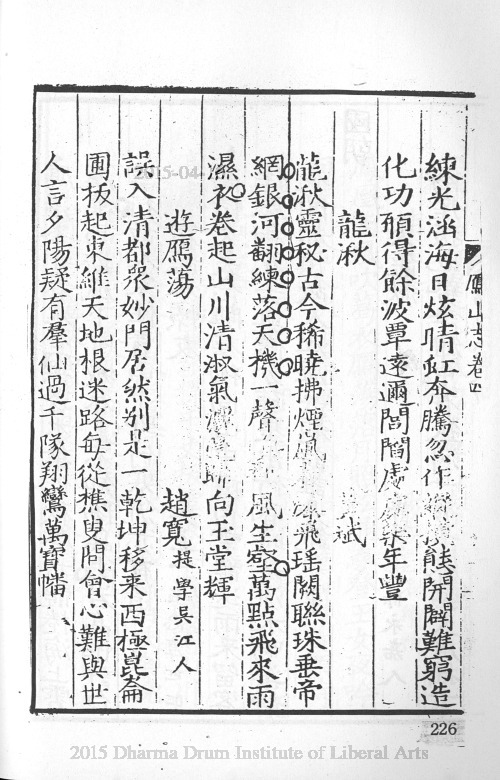 練光涵海日炫晴虹奔騰忽作態開闢難窮造
化功願得餘波覃遠邇閭閻處年豐
龍湫
斌
龍湫靈秘古今稀曉拂煙嵐飛瑤闕聯珠垂帝
網銀河翻練落天機一聲風生壑萬點飛來雨
濕衣卷起山川清淑氣向玉堂輝
遊鴈蕩 趙寬提學吳江人
誤入清都眾妙門居然別是一乾坤移来西極崑崙
圃板起東維天地根迷路每從樵叟問會心難與世
人言夕陽疑有羣仙過千隊翔鸞萬寶幡
鴈山志卷四
226
2015 Dharma Drum Institute of Liberal Arts